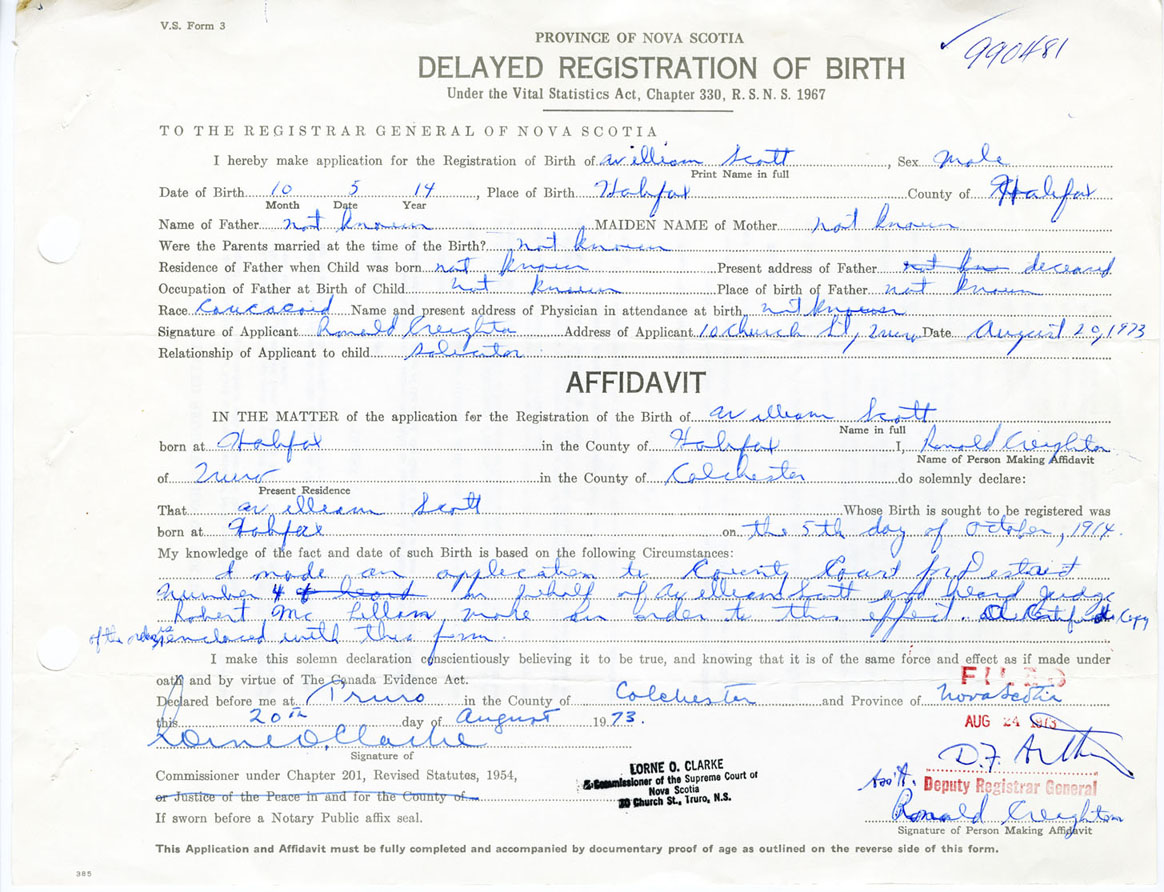 V.S. Form 3
990481
PROVINCE OF NOVA SCOTIA
DELAYED REGISTRATION OF BIRTH
Under the Vital Statistics Act, Chapter 330, R.S.N.S. 1967
TO THE REGISTRAR GENERAL OF NOVA SCOTIA
I hereby make application for the Registration of Birth of William Scott, Sex Male
Print Name in full
Date of Birth 10 5 14, Place of Birth Halifax County of Halifax
Month Date Year
Name of Father not known MAIDEN NAME of Mother not known
Were the Parents married at the time of the Birth? not known
Residence of Father when Child was born not known Present address of Father not kn deceased
Occupation of Father at Birth of Child not known Place of birth of Father not known
Race Caucasoid Name and present address of Physician in attendance at birth not known
Signature of Applicant Ronald Creighton Address of Applicant 10 Church St, Truro Date August 20, 1973
Relationship of Applicant to child solicitor
AFFIDAVIT
IN THE MATTER of the application for the Registration of the Birth of William Scott
Name in full
born at Halifax in the County of Halifax I, Ronald Creighton
Name of Person Making Affidavit
of Truro in the County of Colchester do solemnly declare:
Present Residence
That William Scott Whose Birth is sought to be registered was
born at Halifax on the 5th day of October, 1914.
My knowledge of the fact and date of such Birth is based on the following Circumstances:
I made an application to County Court for District
Number 4 & heard on behalf of William Scott and heard Judge
Robert McLellan make an order to this effect. A Certified Copy
of the order is enclosed with this form.
I make this solemn declaration conscientiously believing it to be true, and knowing that it is of the same force and effect as if made under
oath and by virtue of The Canada Evidence Act.
FILED
Declared before me at Truro in the County of Colchester and Province of Nova Scotia
this 20th day of August 1973.
AUG 24 1973
Lorne O. Clarke
D.F.
Signature of
Commissioner under Chapter 201, Revised Statutes, 1954,
or Justice of the Peace in and for the County of
If sworn before a Notary Public affix seal.
LORNE O. CLARKE
A Commissioner of the Supreme Court of
Nova Scotia
Church St., Truro, N.S.
Ass't. Deputy Registrar General
Ronald Creighton
Signature of Person Making Affidavit
This Application and Affidavit must be fully completed and accompanied by documentary proof of age as outlined on the reverse side of this form.
385